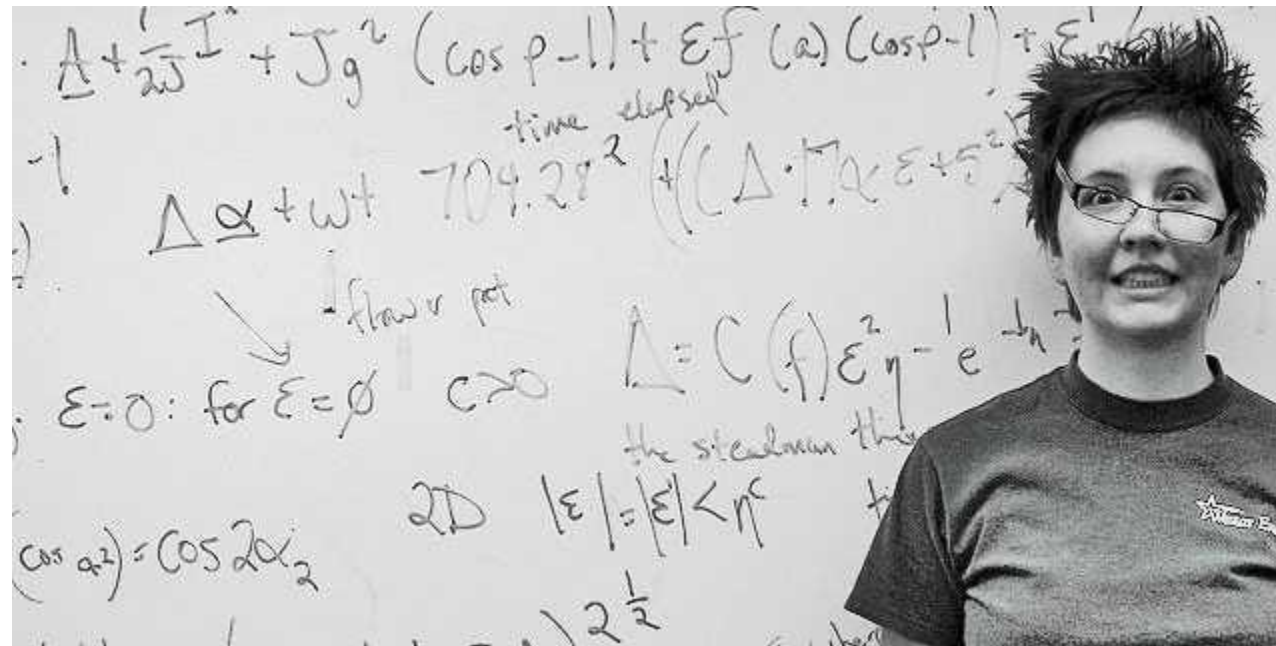 A + 1/2J I² + Jg² (cos p-1) + εf (a) (cos p-1) + ε
time elapsed
-1
Δα + ωt 704.28² + ((Δ·Παε+5²
flow v pot
Δ = C (f) ε² η - 1 e
ε=0: for ε=ø c>0
the steadman
2D |ε|=|ε|<η^c
(cos α²) = cos 2α₂
) 2^1/2